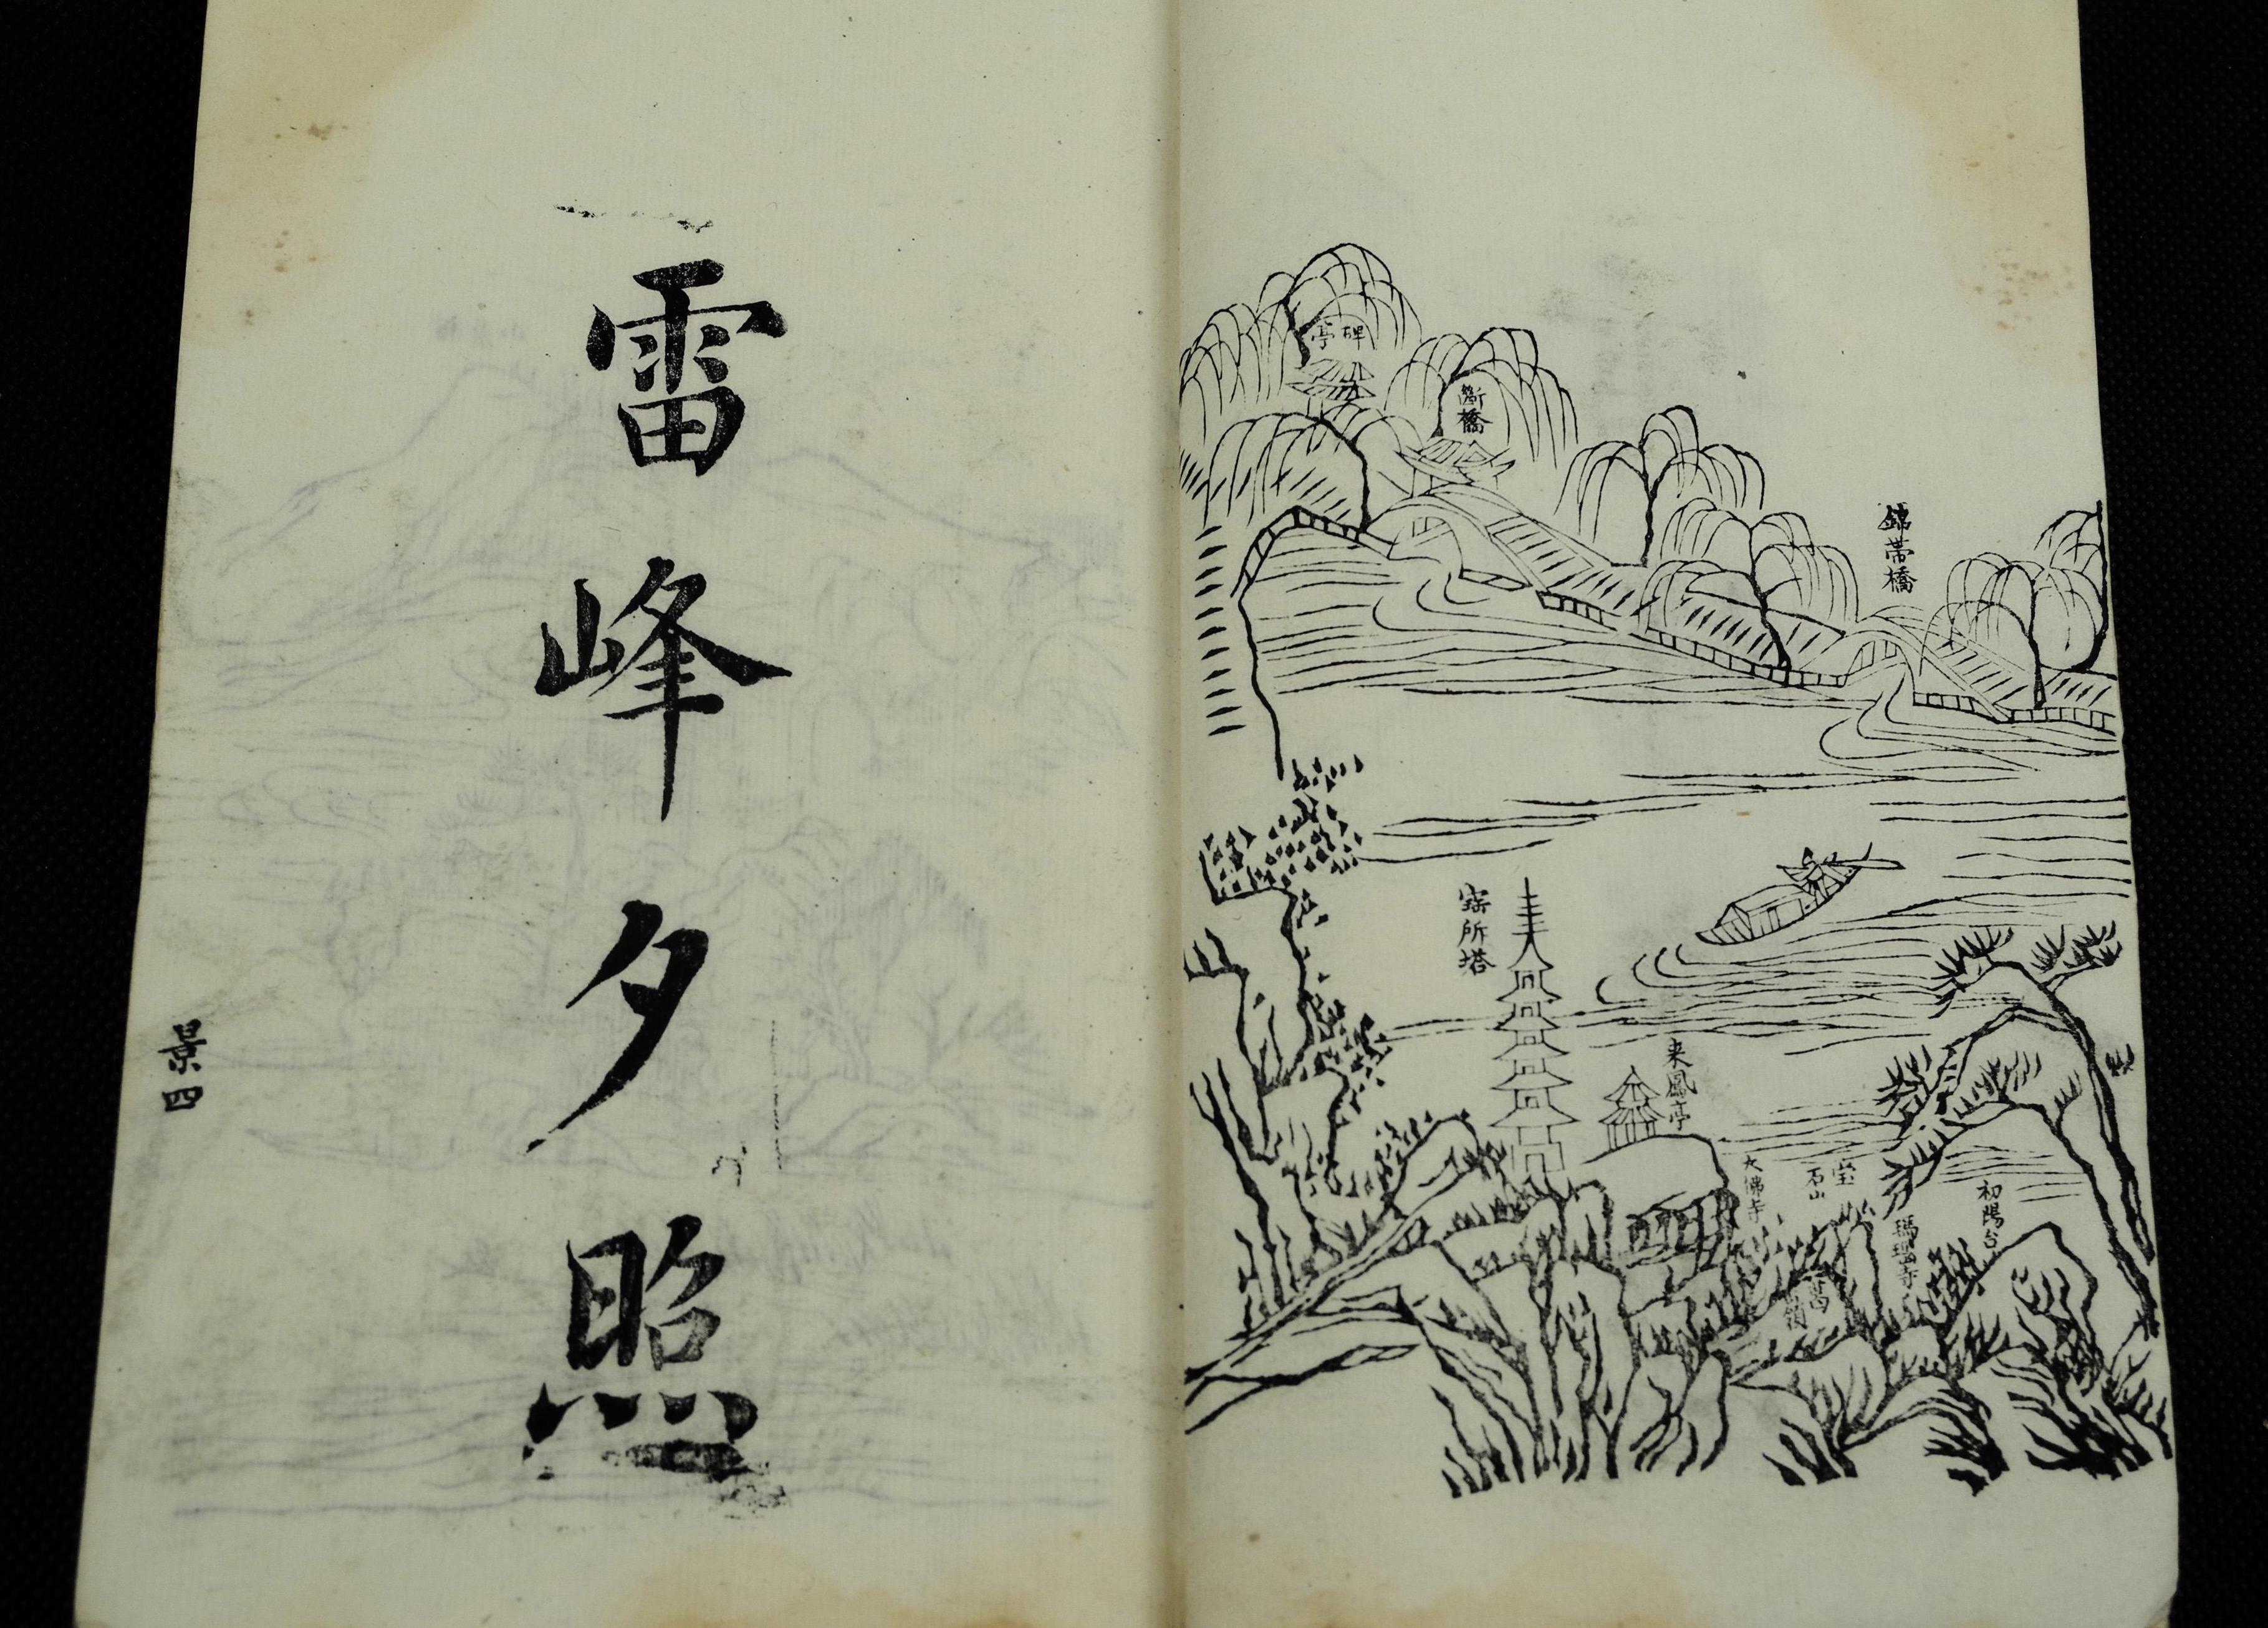 碑亭
斷橋
錦帯橋
寳所塔
来鳳亭
大佛寺
宝石山
瑪瑙寺
初陽台
雷峰夕照
景四